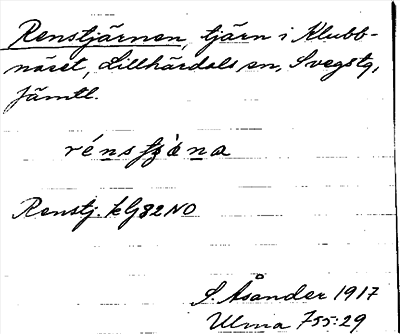 Renstjärnen, tjärn i Klubb-
näset, Lillhärdals sn, Svegs tg,
Jämtl.
Renstj. kG82NO
S. Åsander 1917
Ulma 755:29